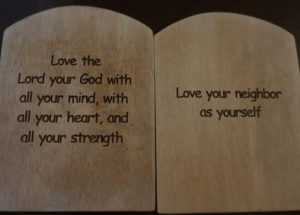 Love the
Lord your God with
all your mind, with
all your heart, and
all your strength
Love your neighbor
as yourself